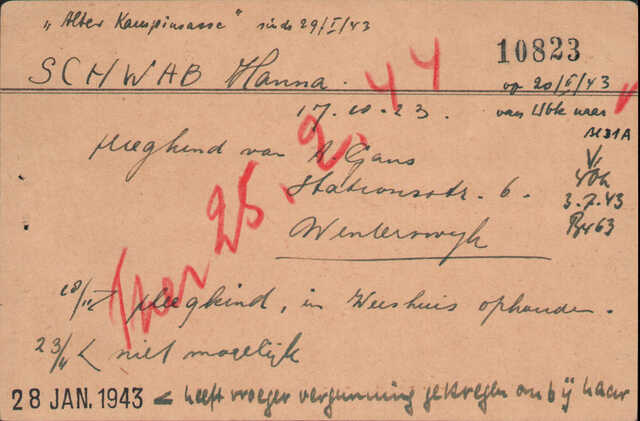 „Alter Kampinsasse" sinds 29/I/43
10823
SCHWAB Hanna.
op 20/II/43
17.10.23.
van Wbk naar
M31A
pleegkind van A. Gans
V.
Stationsstr. 6.
40h
3.7.43
Winterswijk
Br63
Ther 25.2.44
18/11 pleegkind, in Weeshuis ophouden.
23/11 < niet mogelijk
28 JAN. 1943 < heeft vroeger vergunning gekregen om bij haar